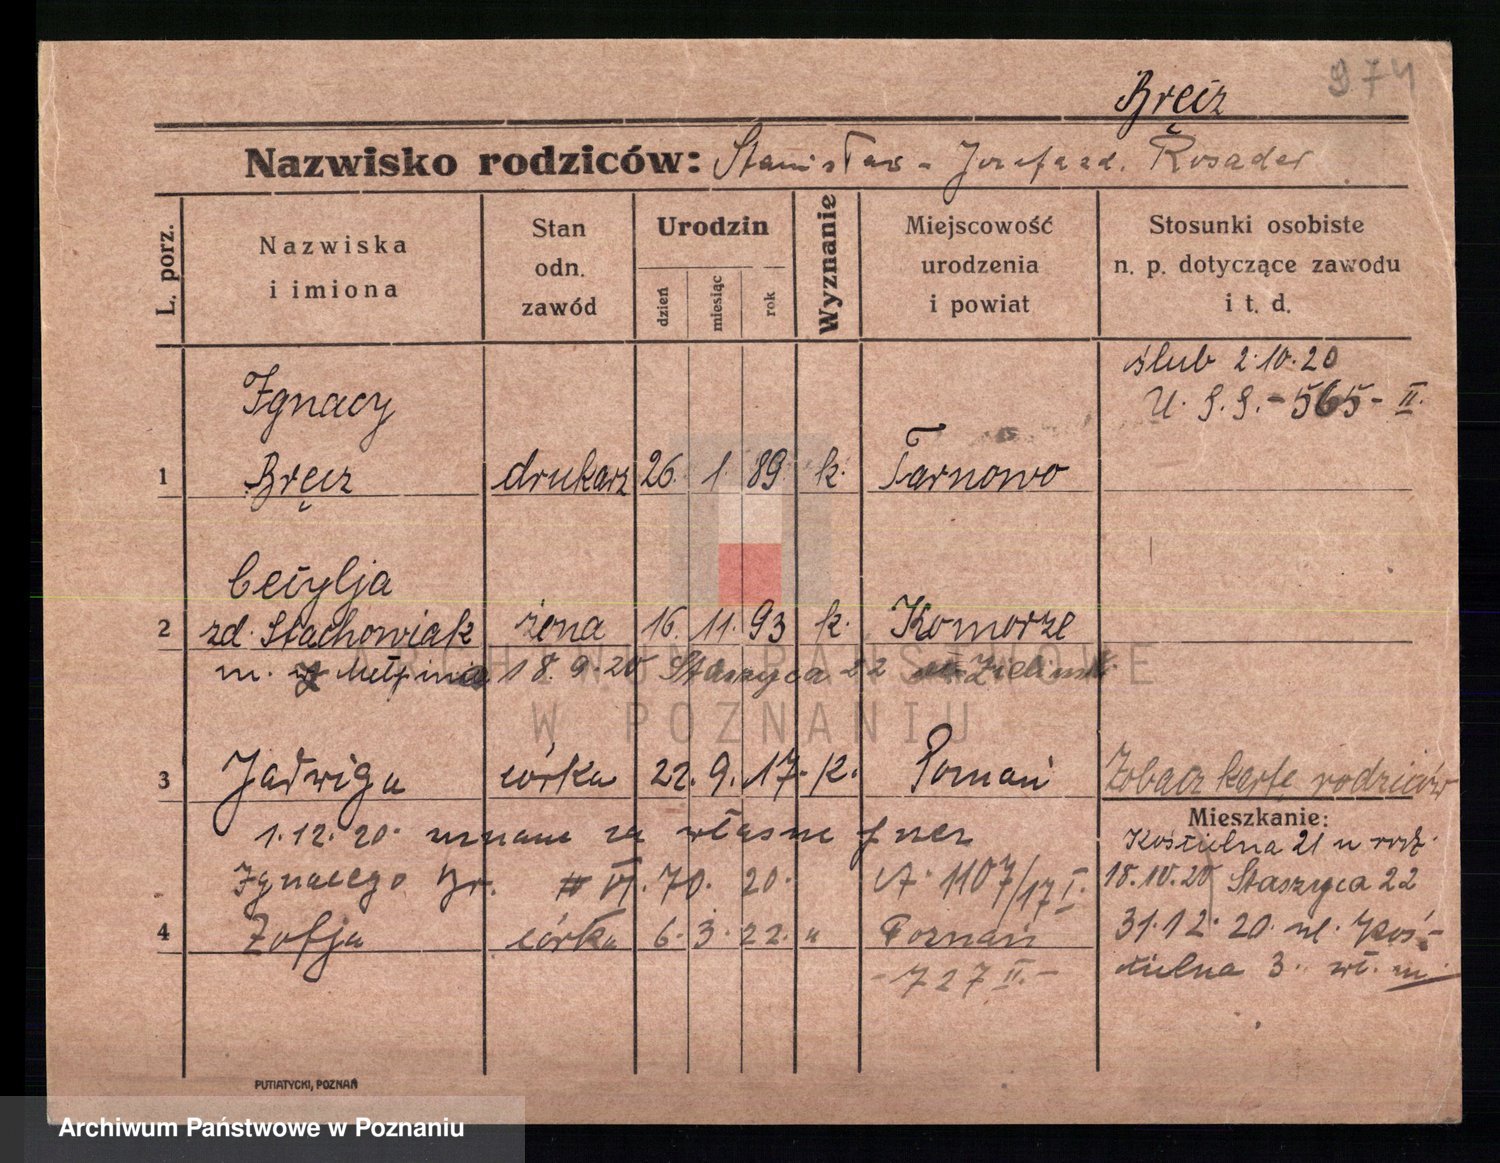 974
Bręcz
Nazwisko rodziców: Stanisław - Józefa zd. Rosader
L. porz.
Nazwiska
i imiona
Stan
odn.
zawód
Urodzin
dzień
miesiąc
rok
Wyznanie
Miejscowość
urodzenia
i powiat
Stosunki osobiste
n. p. dotyczące zawodu
i t. d.
ślub 2.10.20
U. S. S. - 565 - II.
Ignacy
1 Bręcz drukarz 26. 1. 89. k. Tarnowo
Cecylja
2 zd. Stachowiak żona 16. 11. 93 k. Komorze
m. 18.9.20 Staszyca 22
3 Jadwiga córka 22. 9. 17. k. Poznań Zobacz kartę rodziców
Mieszkanie:
1.12.20. uznane za własne przez
Kościelna 21 u rodz.
Ignacego Br. VI. 70. 20. A. 1107/17 I.
18.10.20 Staszyca 22
4 Zofja córka 6. 3. 22. " Poznań
31.12.20. ul. Koś-
cielna 3. wł. m.
- 727 II. -
PUTIATYCKI, POZNAŃ
ARCHIWUM PAŃSTWOWE
W POZNANIU
Archiwum Państwowe w Poznaniu